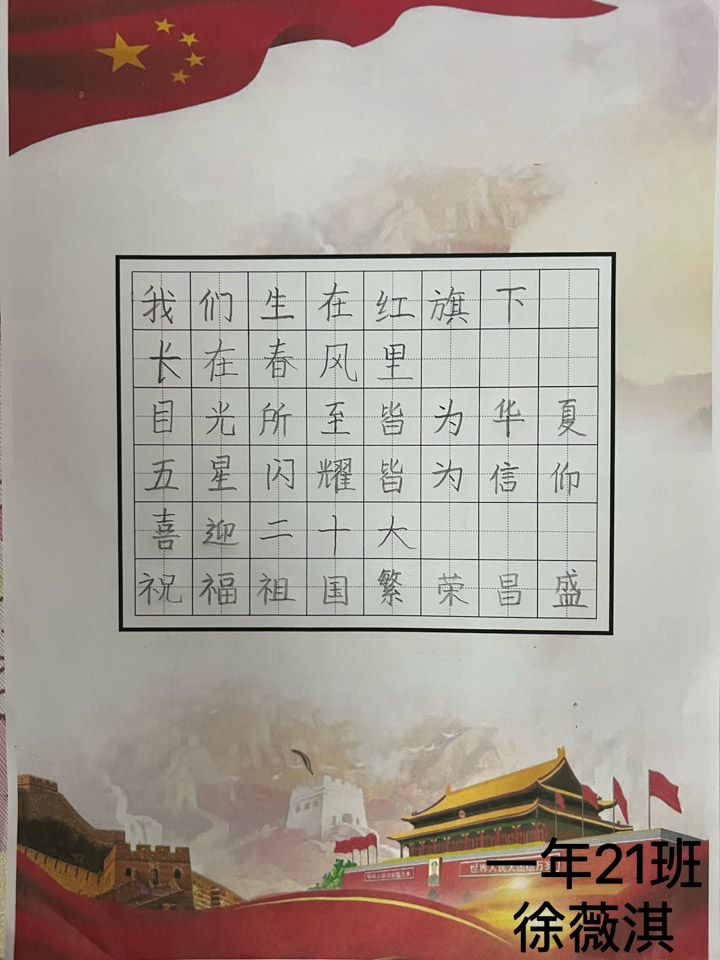 我们生在红旗下
长在春风里
目光所至皆为华夏
五星闪耀皆为信仰
喜迎二十大
祝福祖国繁荣昌盛
一年21班
徐薇淇